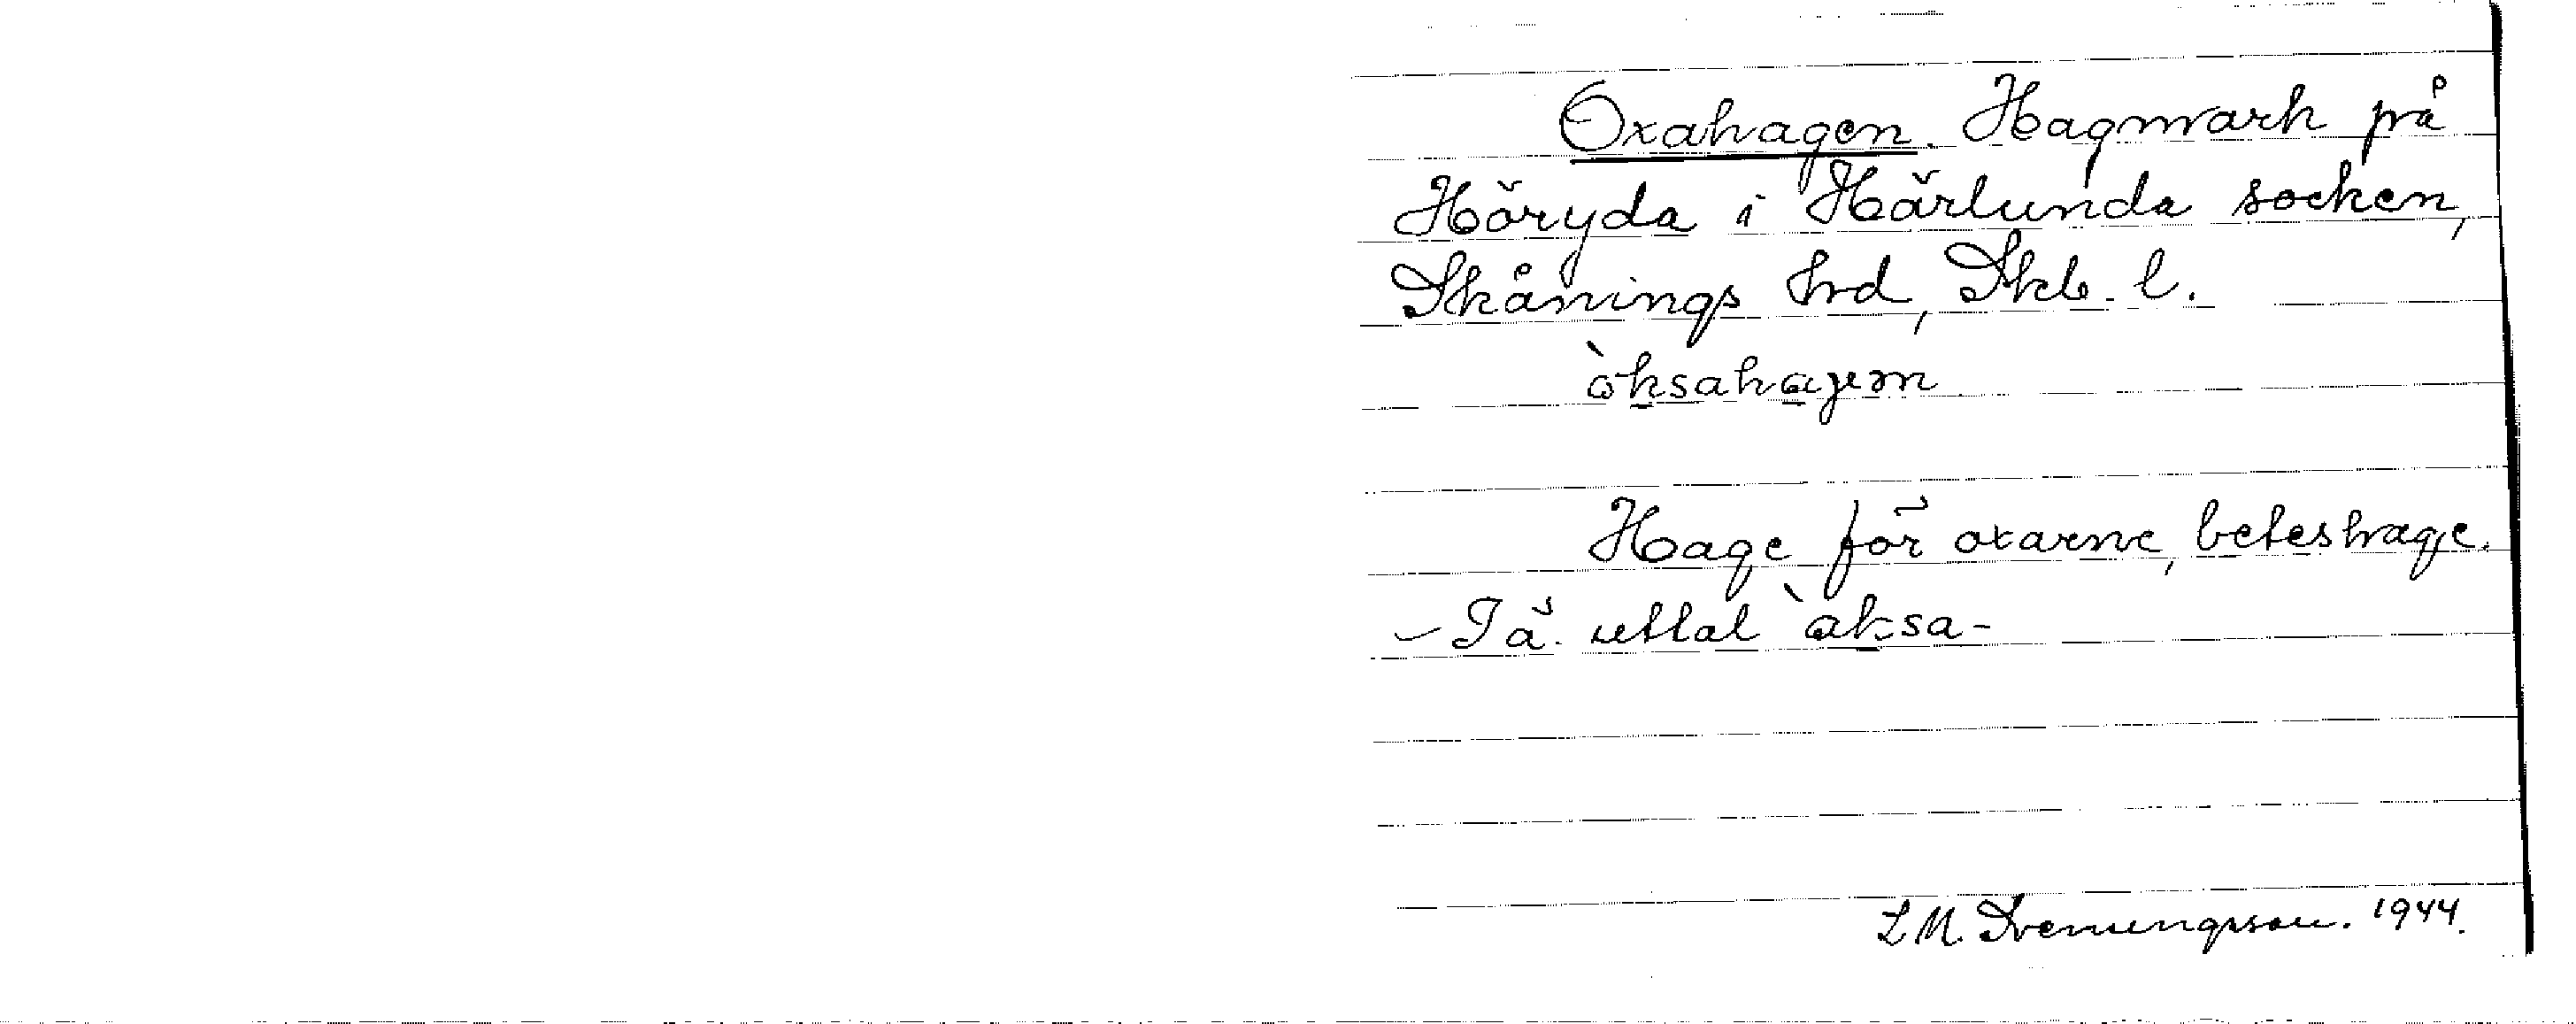 Oxahagen. Hagmark på
Höryda i Härlunda socken,
Skånings hrd, Skb. l.
òksahagen
Hage för oxarne, beteshage.
– Tä. uttal òksa-
L M. Svenungsson. 1944.